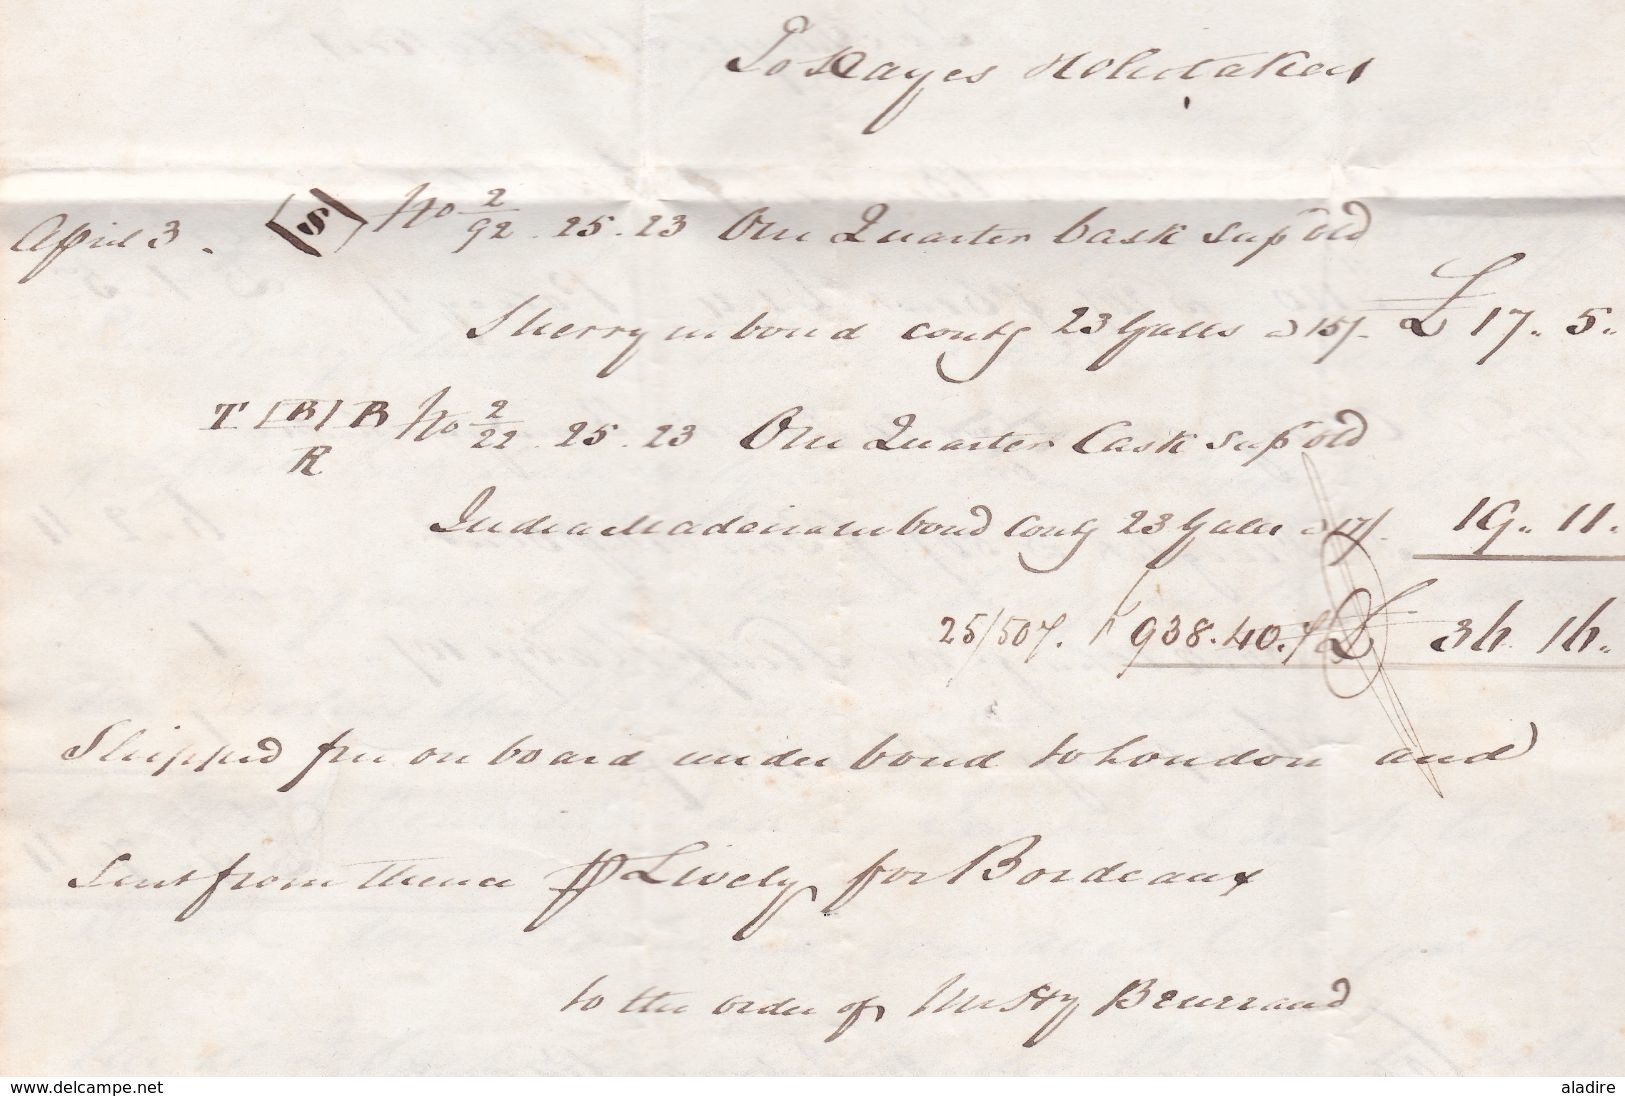 To Hayes
April 3. S No 2/92 . 25 . 23 One Quarter Cask Supr old
Sherry in bond contg 23 Galls @ 15/- £ 17 " 5 "
T B B No 2/22 . 25 . 23 One Quarter Cask Supr old
R
India Madeira in bond contg 23 Galls @ 17/- 19 " 11 "
25/507. 938.40. £ 36 16 "
Shipped free on board under bond to London and
Sent from thence p Lively for Bordeaux
to the order of Mr Hy
www.delcampe.net
aladire